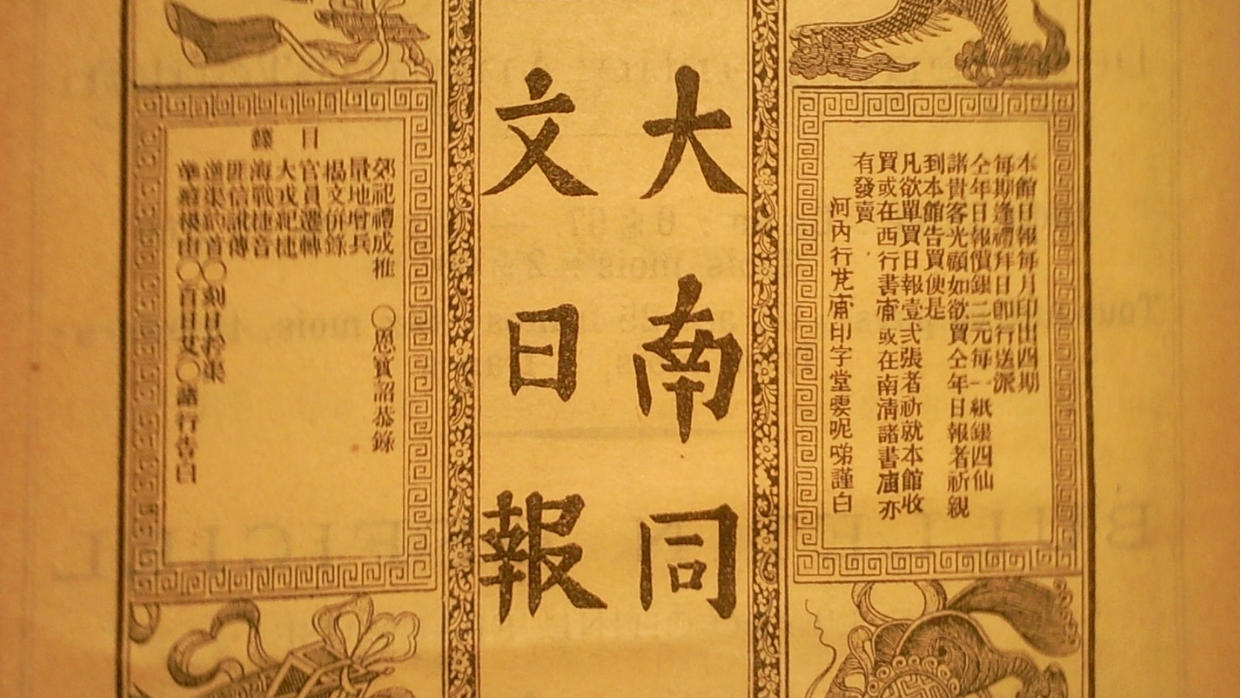 本館日報每月印出四期
每期逢禮拜日卽行送派
仝年日報價銀二元每一紙銀四仙
諸貴客光顧如欲買仝年日報者祈親
到本館告買便是
凡欲單買日報壹弍張者祈就本館收
買或在西行書庯或在南淸諸書庯亦
有發賣
河內行芃庯印字堂雯呢啼謹白
大南同
文日報
目錄
郊祀禮成推 〇恩寶詔恭錄
量地增兵
揭文併錄
官員遷轉
大戎紀捷
海戰捷音
匪信訛傳
逆渠約首〇刻日
〇百日艾〇諸行告白